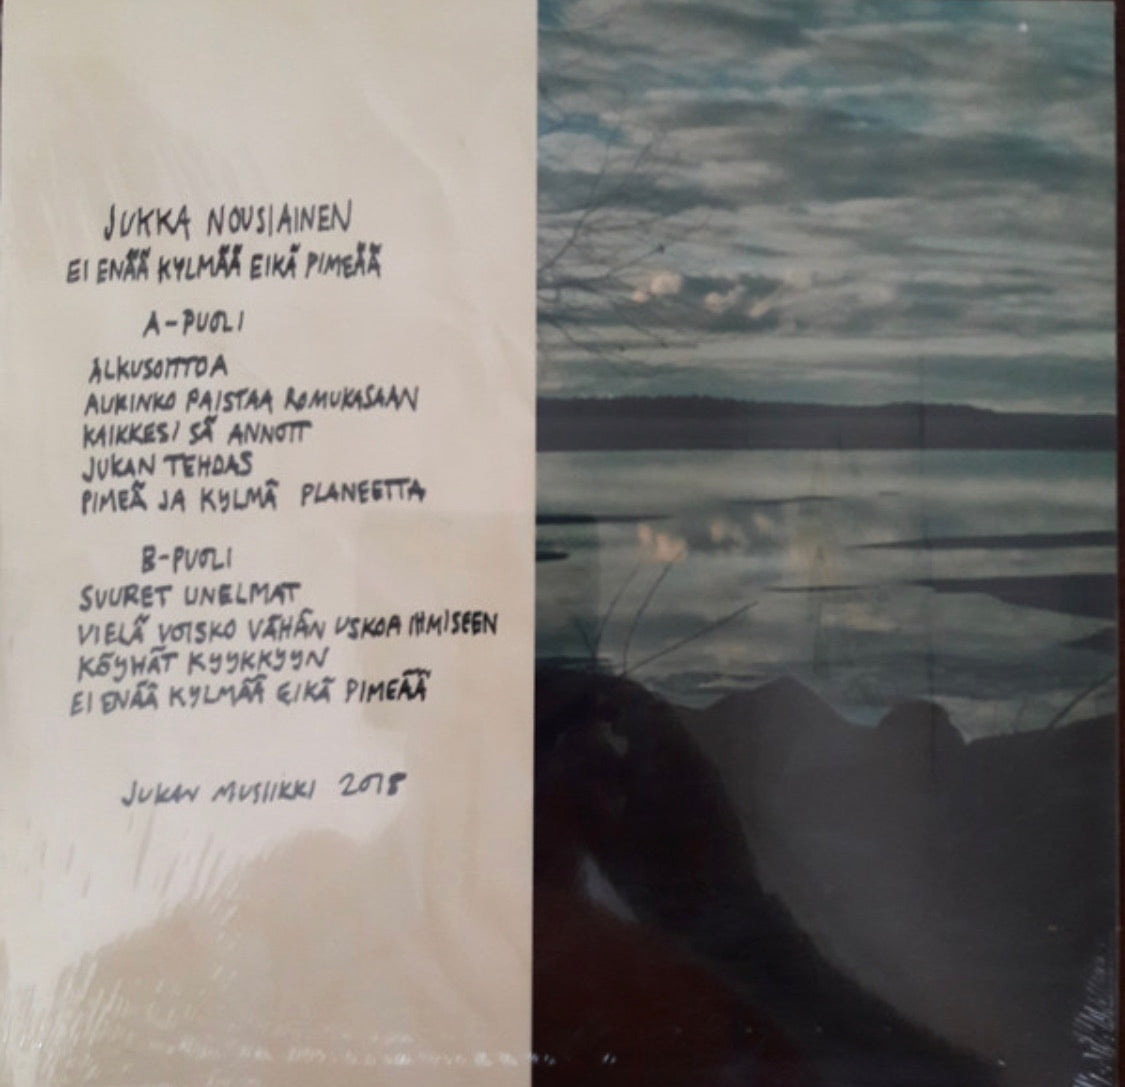 JUKKA NOUSIAINEN
EI ENÄÄ KYLMÄÄ EIKÄ PIMEÄÄ
A-PUOLI
ALKUSOITTOA
AURINKO PAISTAA ROMUKASAAN
KAIKKESI SÄ ANNOIT
JUKAN TEHDAS
PIMEÄ JA KYLMÄ PLANEETTA
B-PUOLI
SUURET UNELMAT
VIELÄ VOISKO VÄHÄN USKOA IHMISEEN
KÖYHÄT KYYKKYYN
EI ENÄÄ KYLMÄÄ EIKÄ PIMEÄÄ
JUKAN MUSIIKKI 2018